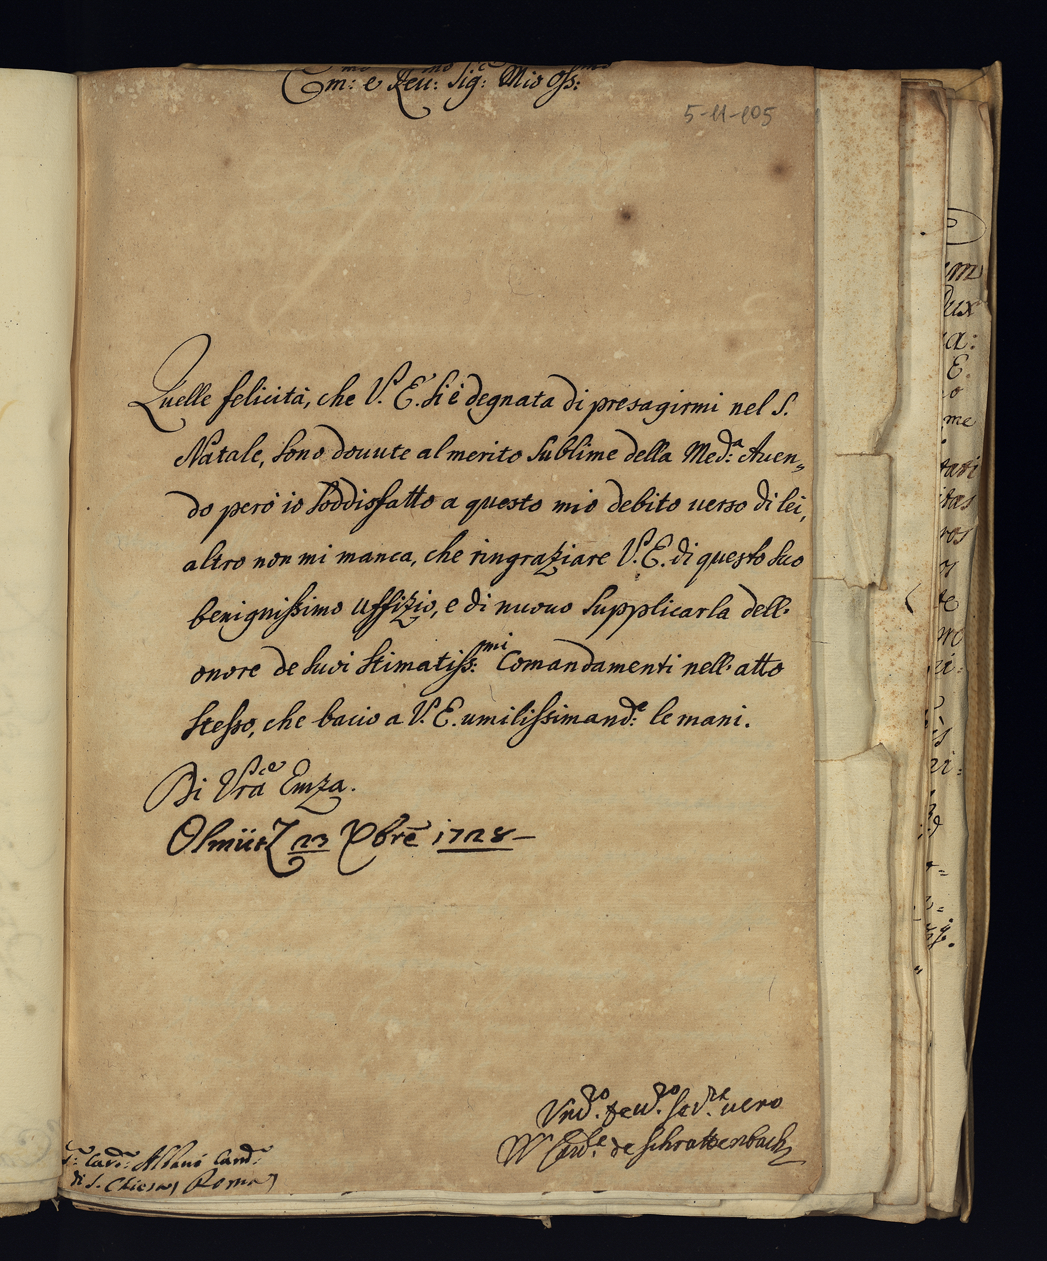 Em:mo e Reu:mo Sig:e Mio Oss:mo
5-11-105
Quelle felicità, che V. E. si è degnata di presagirmi nel S.
Natale, sono douute al merito sublime della Med:a Auen„
do però io soddisfatto a questo mio debito uerso di lei,
altro non mi manca, che ringraziare V. E. di questo suo
benignissimo uffizio, e di nuouo supplicarla dell'
onore de suoi stimatiss:mi Comandamenti nell'atto
stesso, che bacio a V. E. umilissimand:e le mani.
Di Vrã Emza.
Olmütz 23 Xbrẽ 1728
seru.re uero
W Card:le de Schrattenbach
Card: Albani Cam:
di S. Chiesa, Roma